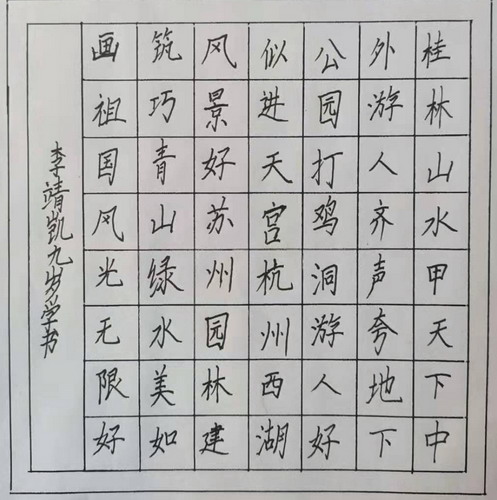 桂林山水甲天下中
外游人齐声夸地下
公园打鸡洞游人好
似进天宫杭州西湖
风景好苏州园林建
筑巧青山绿水美如
画祖国风光无限好
李靖凯九岁学书